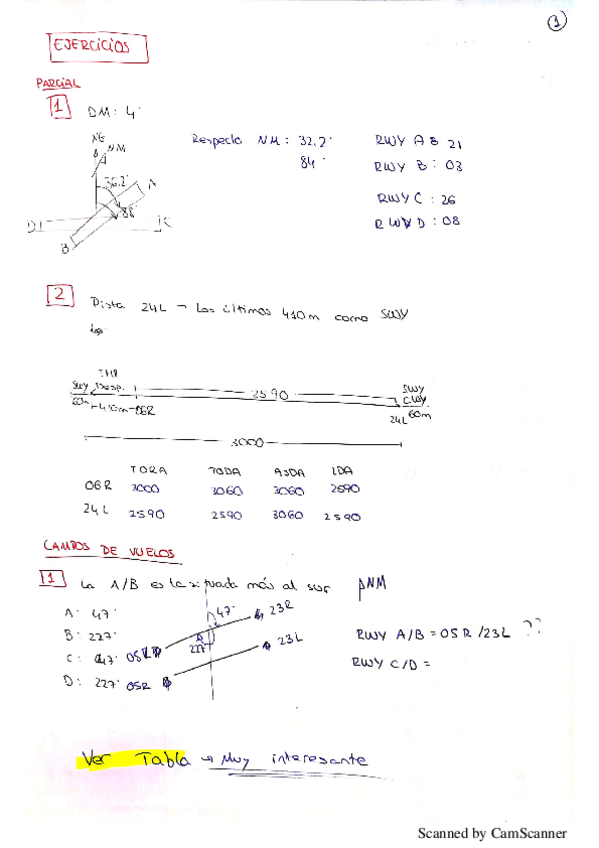 3
EJERCICIOS
PARCIAL
1
DM: 4°
NG
NM
Respecto NM: 32.2°
84°
RWY A: 21
RWY B: 03
RWY C: 26
RWY D: 08
36.2°
88°
A
B
C
D
2
Pista 24L → Los últimos 410m como SWY
THR
Desp.
SWY
60m
410m
06R
2590
SWY
CWY
60m
24L
3000
TORA TODA ASDA LDA
06R 3000 3060 3060 2590
24L 2590 2590 3060 2590
CAMPOS DE VUELOS
1 La A/B es la situada más al sur ¡NM
A: 47°
B: 227°
C: 47°
D: 227°
47°
227°
23R
23L
05L
05R
RWY A/B = 05R/23L ??
RWY C/D =
Ver Tabla → Muy interesante
Scanned by CamScanner